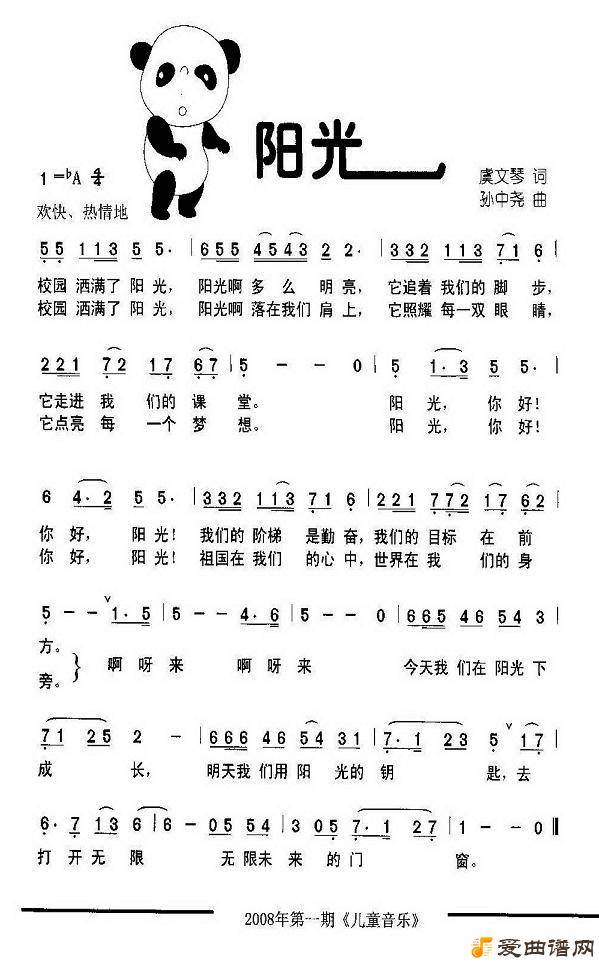 阳光
1=♭A 4/4
虞文琴 词
孙中尧 曲
欢快、热情地
5 5 1 1 3 5 5· | 6 5 5 4 5 4 3 2 2· | 3 3 2 1 1 3 7 1 6 |
校园 洒满了 阳 光， 阳光啊 多 么 明 亮， 它追着 我们的 脚 步，
校园 洒满了 阳 光， 阳光啊 落在我们 肩 上， 它照耀 每一双 眼 睛，
2 2 1 7 2 1 7 6 7 | 5 - - 0 | 5 1·3 5 5· |
它走进 我 们的 课 堂。 阳 光， 你 好！
它点亮 每 一个 梦 想。 阳 光， 你 好！
6 4·2 5 5· | 3 3 2 1 1 3 7 1 6 | 2 2 1 7 7 2 1 7 6 2 |
你 好， 阳 光！ 我们的 阶梯 是勤 奋，我们的 目标 在 前
你 好， 阳 光！ 祖国在 我们 的心 中，世界在 我 们的 身
5 - - 1·5 | 5 - - 4·6 | 5 - - - | 6 6 5 4 6 5 4 3 |
方。
旁。
啊 呀 来 啊 呀 来 今天我 们在 阳光 下
7 1 2 5 2 - | 6 6 6 4 6 5 4 3 1 | 7·1 2 3 5 1 7 |
成 长， 明天我 们用 阳 光的 钥 匙，去
6·7 1 3 6 | 6 - 0 5 5 4 | 3 0 5 7·1 2 7 | 1 - - 0 ‖
打 开无 限 无 限未 来 的 门 窗。
2008年第一期《儿童音乐》
爱曲谱网